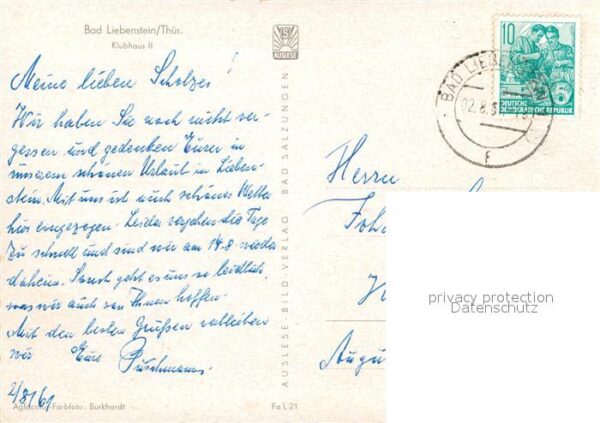 Bad Liebenstein/Thür.
Klubhaus II
Meine lieben Scholzes!
Wir haben Sie noch nicht ver-
gessen und gedenken Eurer in
unserem schönen Urlaub in Lieben-
stein. Mit uns ist auch schönes Wetter
hier eingezogen. Leider vergehen die Tage
zu schnell und sind wir am 14.8 wieder
daheim. Sonst geht es uns so leidlich,
was wir auch von Ihnen hoffen.
Mit den besten Grüßen verbleiben
wir Eure Puschmanns.
2/8/61
Agfacolor-Farbfoto: Burkhardt
Fa L 21
AUSLESE BILD-VERLAG BAD SALZUNGEN
AUSLESE
10
DEUTSCHE
DEMOKRATISCHE REPUBLIK
BAD LIEBENSTEIN
Herrn
Joha
Augu
privacy protection
Datenschutz